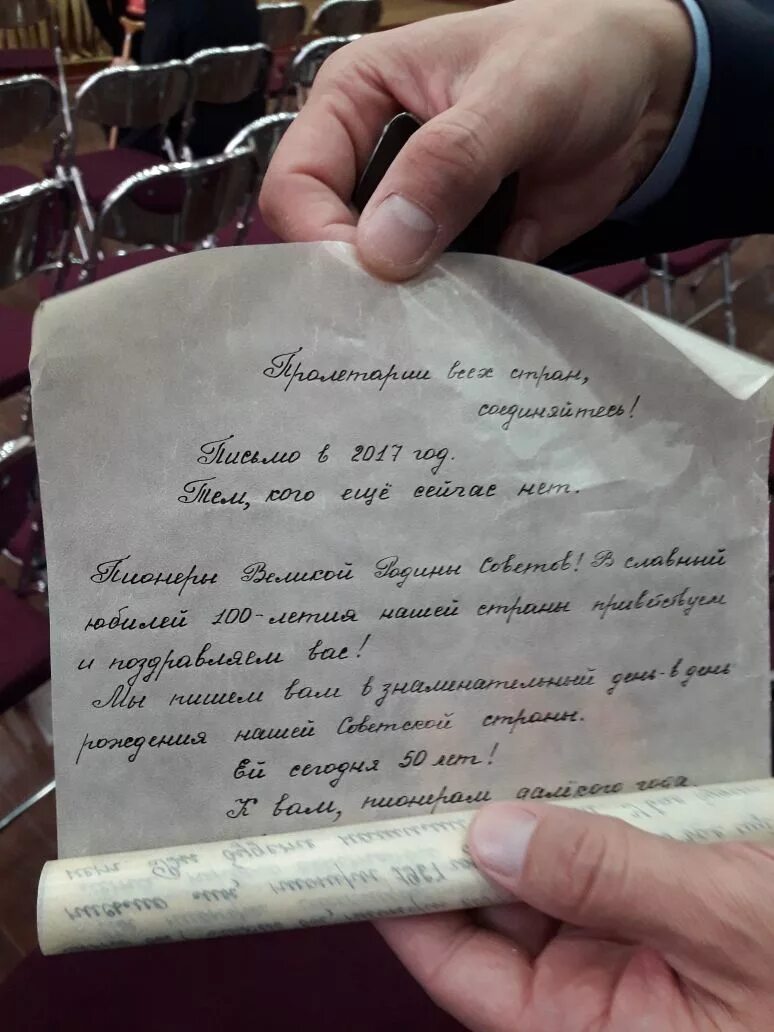 Пролетарии всех стран,
соединяйтесь!
Письмо в 2017 год.
Тем, кого ещё сейчас нет.
Пионеры Великой Родины Советов! В славный
юбилей 100-летия нашей страны приветствуем
и поздравляем вас!
Мы пишем вам в знаменательный день - в день
рождения нашей Советской страны.
Ей сегодня 50 лет!
К вам, пионерам далёкого года